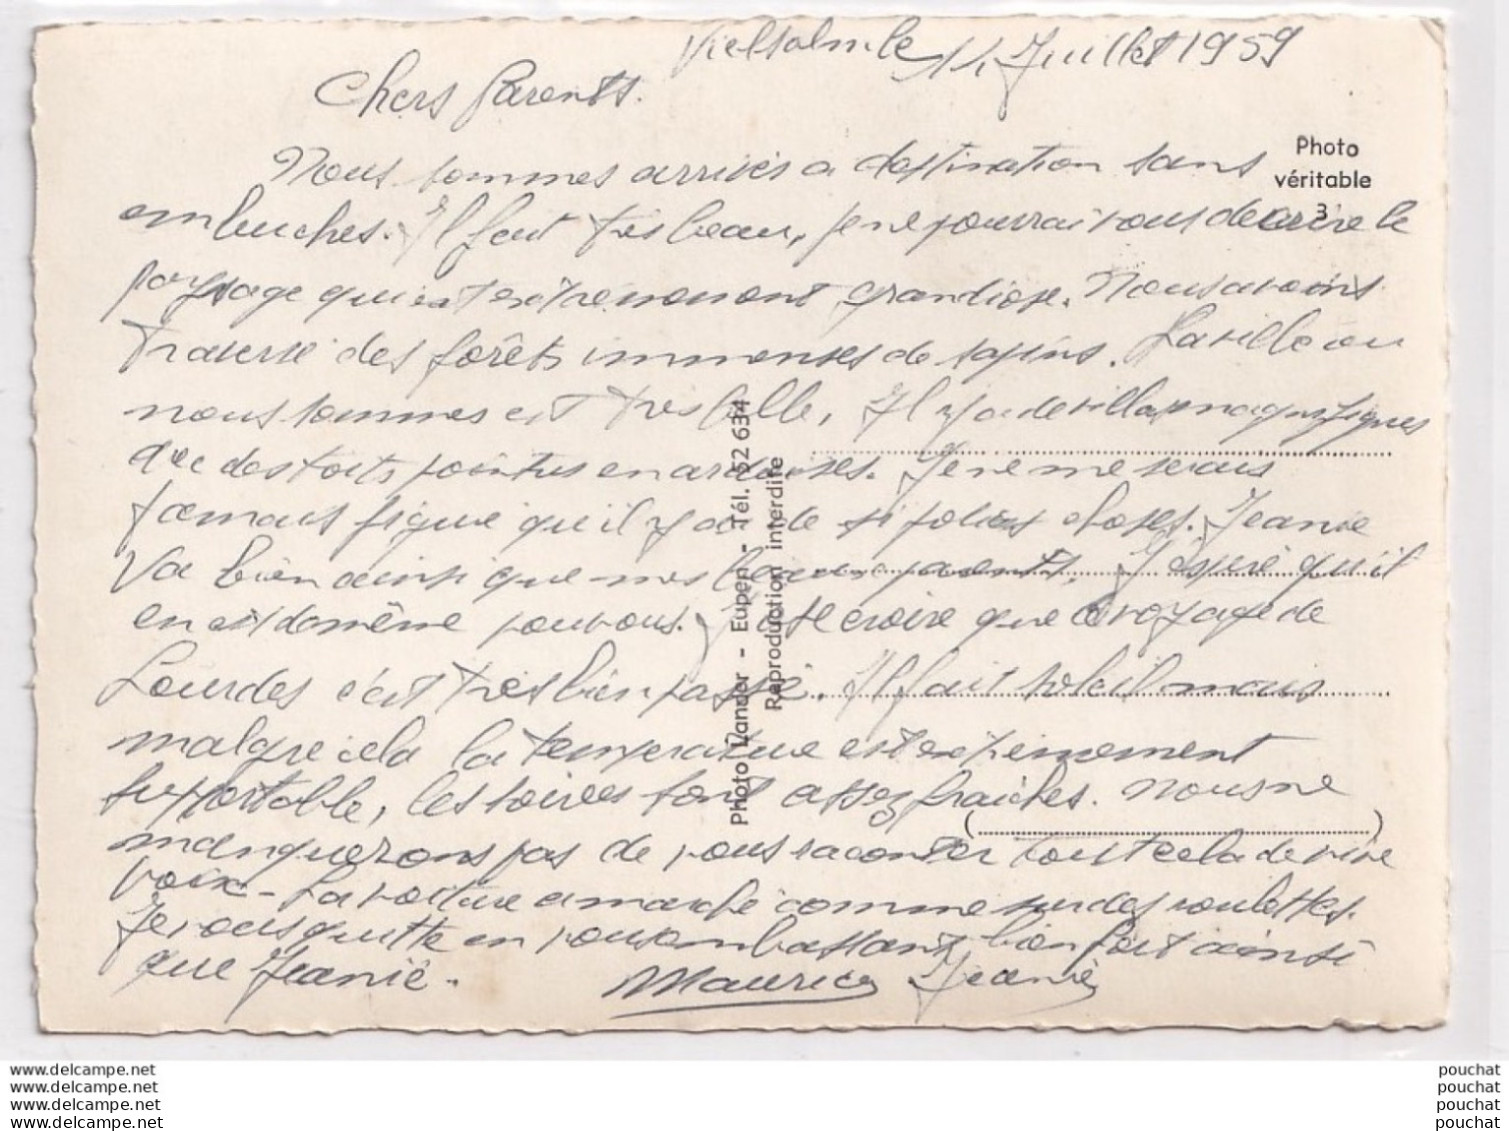 Vielsalm le 11 Juillet 1959
Chers Parents.
Photo
véritable
3
Nous sommes arrivés a destination sans
embuches. Il fait très beau, je ne pourrai vous decrire le
paysage qui est extremement grandiose. Nous avons
traversé des forêts immenses de sapins. La ville ou
nous sommes est très belle, Il y a de villas magnifiques
avec des toits pointus en ardoises. Je ne me serais
jamais figuré qu'il y a de si jolies choses. Jeanie
va bien ainsi que mes beaux parents, J'espère qu'il
en est de même pour vous. J'ose croire que le voyage de
Lourdes c'est très bien passé. Il fait soleil mais
malgre cela la temperature est extremement
supportable, les soirées sont assez fraiches. Nous ne
manquerons pas de vous raconter tout cela de vive
voix - La voiture a marché comme sur des roulettes.
Je vous quitte en vous embrassant bien fort ainsi
que Jeanie. Maurice Jeanie
Photo Lander - Eupen - Tél. 52 634
Reproduction interdite
www.delcampe.net
www.delcampe.net
www.delcampe.net
www.delcampe.net
pouchat
pouchat
pouchat
pouchat